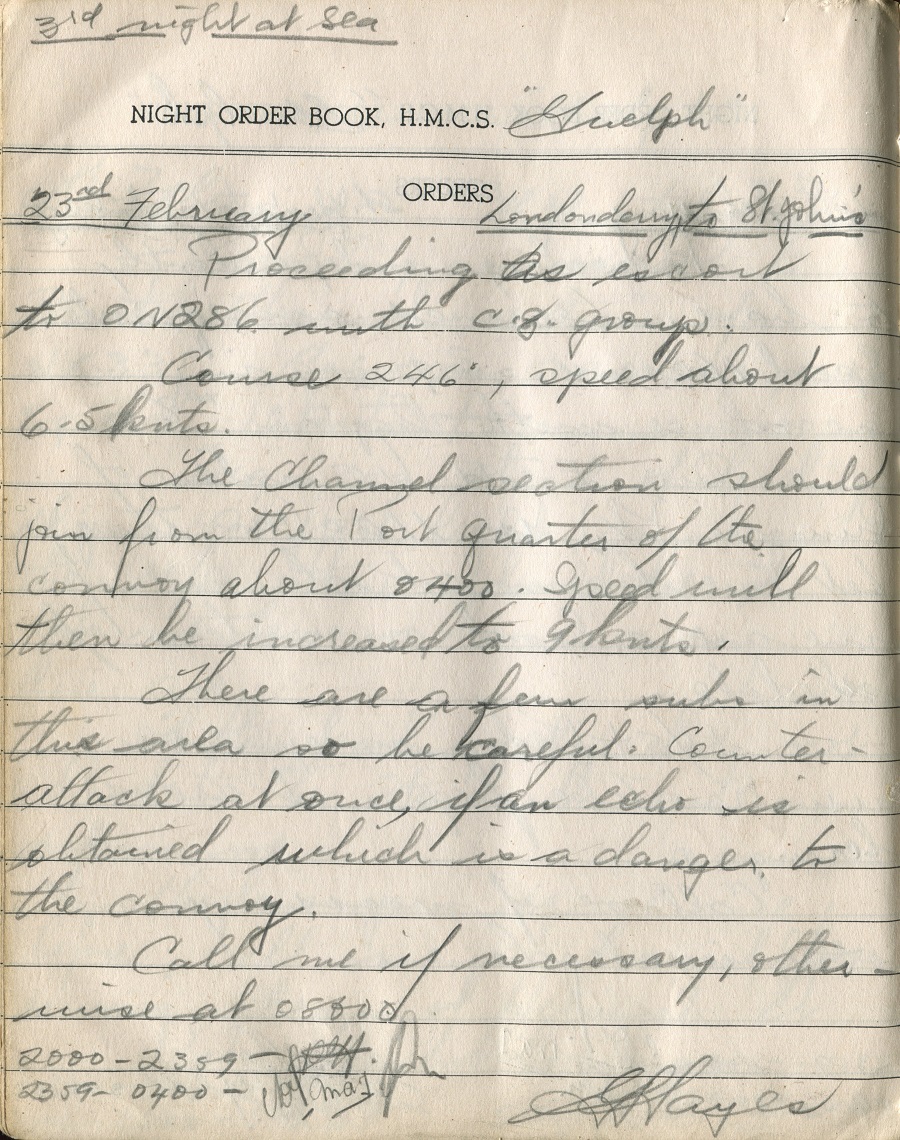 3rd night at Sea
NIGHT ORDER BOOK, H.M.C.S. "Guelph"
ORDERS
23rd February Londonderry to St. John's
Proceeding as escort
to ON286 with C.8. group.
Course 246°, speed about
6.5 knts.
The Channel section should
join from the Port quarter of the
convoy about 0400. Speed will
then be increased to 9 knts.
There are a few subs in
this area so be careful. Counter-
attack at once, if an echo is
obtained which is a danger to
the convoy.
Call me if necessary, other-
wise at 0800
2000-2359 -
2359- 0400 -
Hayes